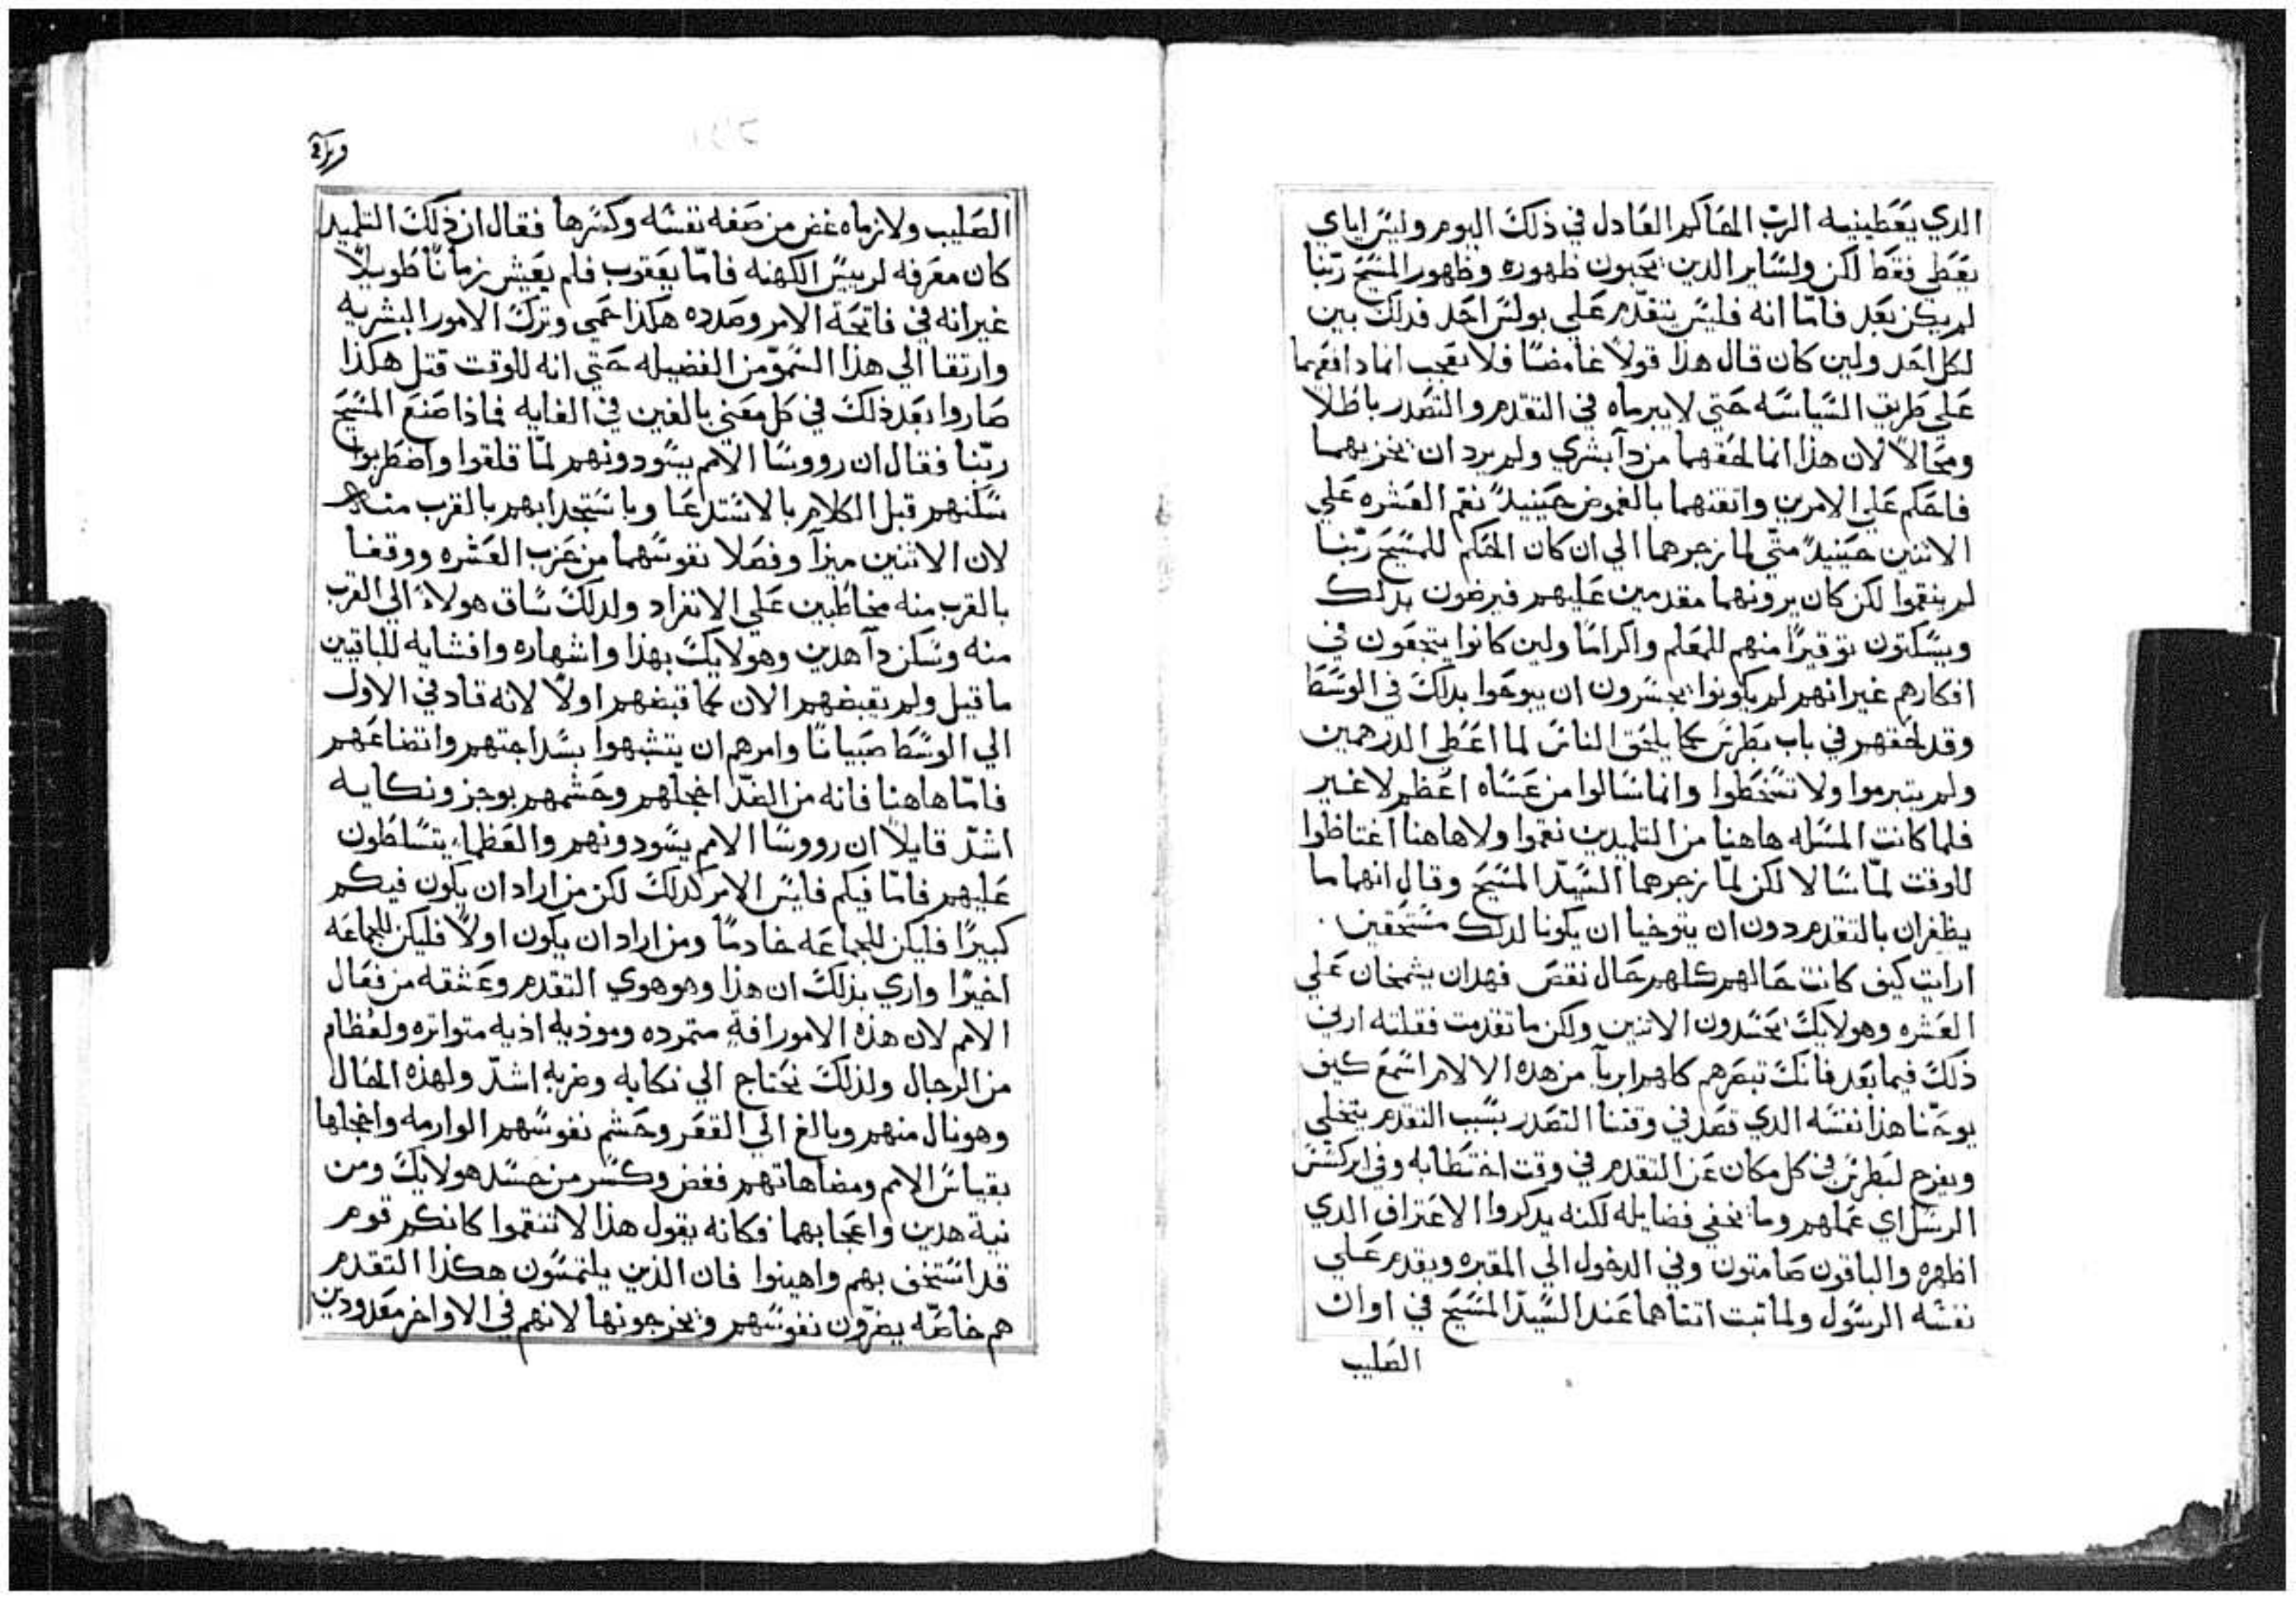 الدي يعطينيه الرب الحاكم العادل في ذلك اليوم وليس اياي
يعطي فقط لكن ولساير الدين يحبون ظهوره وظهور المسيح ربّنا
لم يكن بعد فامّا انه فليس يتقدّم علي بولس احد فدلك بين
لكل احد ولين كان قال هدا قولاً غامضًا فلا تعجب انما دافعهما
علي طريق السياسه حتي لا يبرماه في التقدم والتصدر باطلاً
ومحالاً لان هذا انما لحقهما من دآ بشري ولم يرد ان يخزيهما
فاحكم علي الامرين واتقنهما بالغموض حينيدٍ نقم العشره علي
الاتنين حينيدٍ متّي لما زجرهما الي ان كان الحكم للمسيح ربّنا
لم ينقموا لكن كان يرونهما مقدمين عليهم فيرضون بدلك
ويسكتون توقيرًا منهم للمعلم واكرامًا ولين كانوا يتجعون في
افكارهم غير انهم لم يكونوا يجسرون ان يبوحوا بدلك في الوسط
وقد لحقهم في باب بطرس كما يلحق الناس لما اعطي الدرهمين
ولم يتبرموا ولا تسخطوا وانما سالوا من عساه اعظم لا غير
فلما كانت المسله هاهنا من التلميدين نقموا ولا هاهنا اغتاظوا
للوقت لمّا سالا لكن لمّا زجرهما السيّد المسيح وقال انهما ما
يظفران بالتقدم دون ان يتوخيا ان يكونا لدلك مستحقين.
ارايت كيف كانت حالهم كلهم حال نقص فهدان يشمخان علي
العشره وهولايك يحسدون الاتنين ولكن ما تقدمت فقلته ارني
ذلك فيما بعد فانك تبصرهم كلهم ابريآ من هده الالام اسمع كيف
يوحنا هذا نفسه الدي قصد في وقتنا التصدر بسبب التقدم يتخلي
ويفرج لبطرس في كل مكان عن التقدم في وقت اختطابه وفي ابركسس
الرسل اي عملهم وما يخفي فضايله لكنه يدكروا الاعتراف الدي
اظهره والباقون صامتون وفي الدخول الي المقبره ويقدم علي
نفسه الرسول ولما تبت اتناهما عند السيّد المسيح في اوان
الصليب
الصليب ولازماه غض من صفه نفسه وكسرها فقال ان ذلك التلميد
كان معرفه لرييس الكهنه فامّا يعقوب فلم يعيش زمانًا طويلاً
غير انه في فاتحة الامر وصدده هكذا حمي وترك الامور البشريه
وارتقا الي هذا السموّ من الفضيله حتي انه للوقت قتل هكذا
صاروا بعد ذلك في كل معني بالغين في الغايه فماذا صنع المسيح
ربّنا فقال ان رووسا الامم يسودونهم لمّا قلقوا واضطربوا
سكنهم قبل الكلام بالاستدعا وباستجدابهم بالقرب منه
لان الاتنين ميزآ وفصلا نفوسهما من حزب العشره ووقفا
بالقرب منه مخاطبين علي الانفراد ولدلك ساق هولاءِ الي القرب
منه وسكن دآ هدين وهولايك بهذا واشهاره وافشايه للباقيين
ما قيل ولم يقبضهم الان كما قبضهم اولاً لانه قاد في الاول
الي الوسط صبيانًا وامرهم ان يتشبهوا بسداجتهم واتضاعهم
فامّا هاهنا فانه من الضدّ اخجلهم وحشمهم بوجز ونكايه
اشدّ قايلاً ان رووسا الامم يسودونهم والعظماء يتسلطون
عليهم فامّا فيكم فليس الامر كدلك لكن من اراد ان يكون فيكم
كبيرًا فليكن للجماعه خادمًا ومن اراد ان يكون اولاً فليكن للجماعه
اخيرًا واري بذلك ان هذا وهو هوي التقدم وعشقه من فعال
الامم لان هذه الامور افةٍ متمرده وموذيه اذيه متواتره ولعظام
من الرجال ولذلك تحتاج الي نكايه وضربهِ اشدّ ولهذه الحال
وهو نال منهم وبالغ الي القعر وحشم نفوسهم الوارمه واخجلها
بقياس الامم ومضاهاتهم فغض وكسر من حسد هولايك ومن
نية هدين واعجابهما فكانه يقول هذا لا تنقموا كانكم قوم
قد استخف بهم واهينوا فان الذين يلتمسون هكذا التقدم
هم خاصّه يضرّون نفوسهم ويخرجونها لانهم في الاواخر معدودين